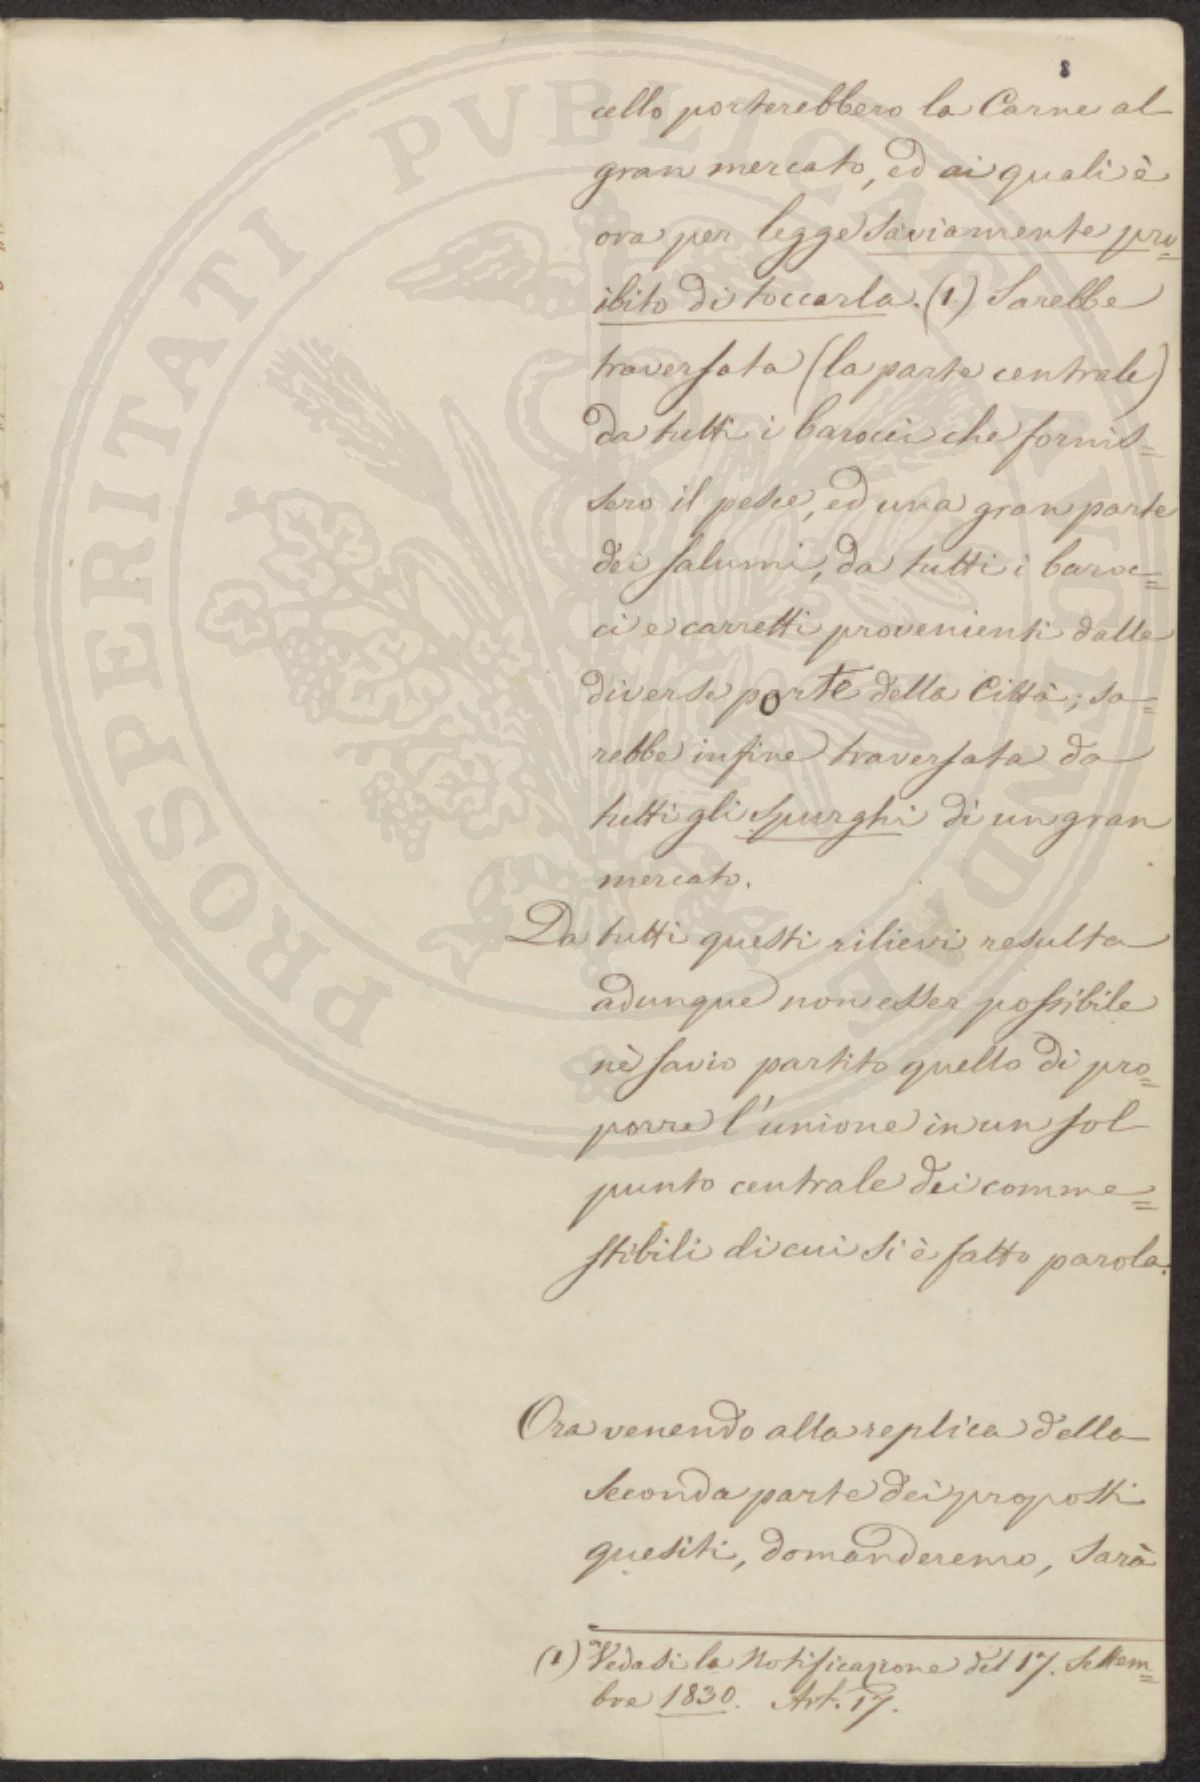 8
cello porterebbero la Carne al
gran mercato, ed ai quali è
ora per legge saviamente pro=
ibito di toccarla. (1.) Sarebbe
traversata (la parte centrale)
da tutti i barocci che fornis=
sero il pesce, ed una gran parte
dei salumi, da tutti i baroc=
ci e carretti provenienti dalle
diverse porte della Città; sa=
rebbe infine traversata da
tutti gli spurghi di un gran
mercato.
Da tutti questi rilievi resulta
adunque non esser possibile
nè savio partito quello di pro=
porre l'unione in un sol
punto centrale dei comme=
stibili di cui si è fatto parola.
Ora venendo alla replica della
seconda parte dei proposti
quesiti, domanderemo, sarà
(1) Vedasi la Notificazione del 17. Settem=
bre 1830. Art. 17.
PROSPERITATI PVBLICAE AVGENDAE